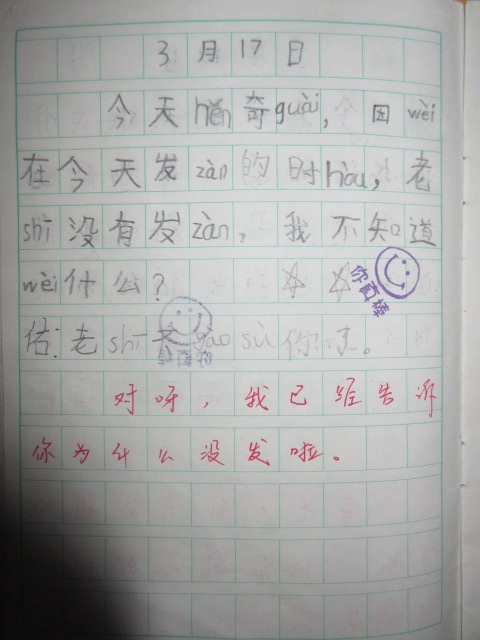 3月17日
今天hěn奇guài，因wèi
在今天发zàn的时hòu，老
shī没有发zàn，我不知道
wèi什么？
你真棒
估：老shī gào sù你了。
对呀，我已经告诉
你为什么没发啦。